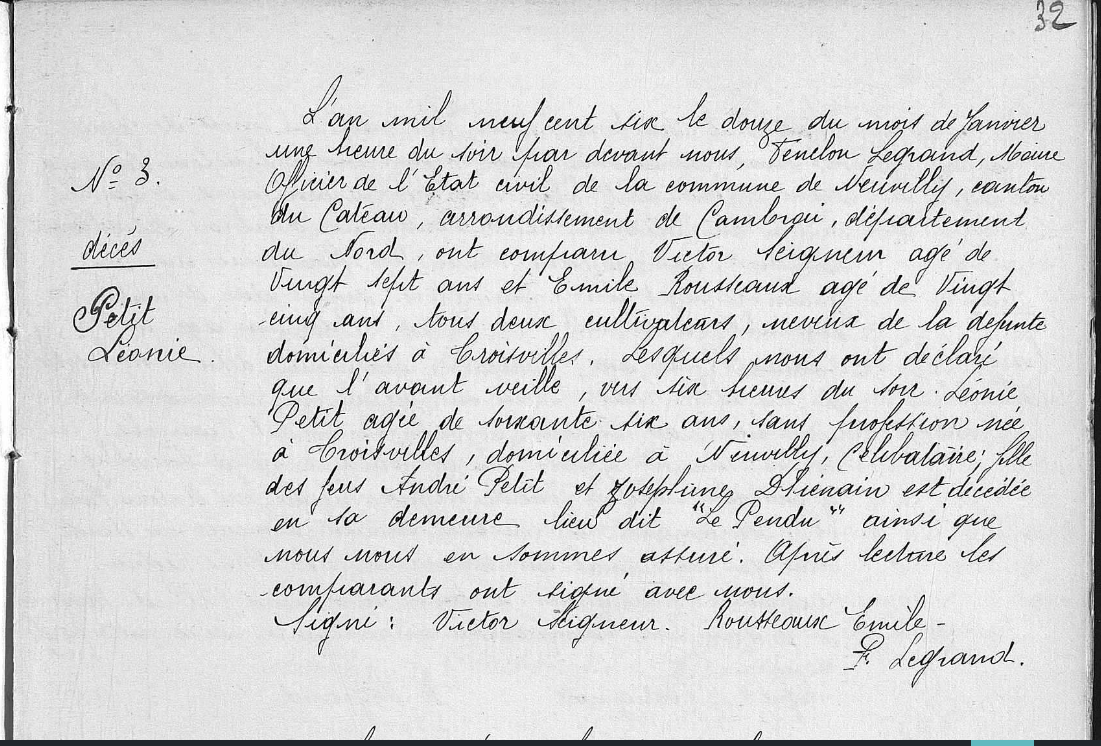 32
L'an mil neuf cent six le douze du mois de Janvier
une heure du soir par devant nous, Fenelon Legrand, Maire
Officier de l'Etat civil de la commune de Neuvilly, canton
du Cateau, arrondissement de Cambrai, département
du Nord, ont comparu Victor Seigneur agé de
Vingt sept ans et Emile Rousseaux agé de Vingt
cinq ans, tous deux cultivateurs, neveux de la defunte
domiciliés à Troisvilles Lesquels nous ont déclaré
que l'avant veille, vers six heures du soir. Léonie
Petit agée de soixante six ans, sans profession née
à Troisvilles, domiciliée à Neuvilly, Célibataire; fille
des feus André Petit et Joséphine est décédée
en sa demeure lieu dit "Le Pendu" ainsi que
nous nous en sommes assuré. Après lecture les
comparants ont signé avec nous.
Signé: Victor Seigneur. Rousseaux Emile -
F. Legrand.
No 3.
décès
Petit
Léonie